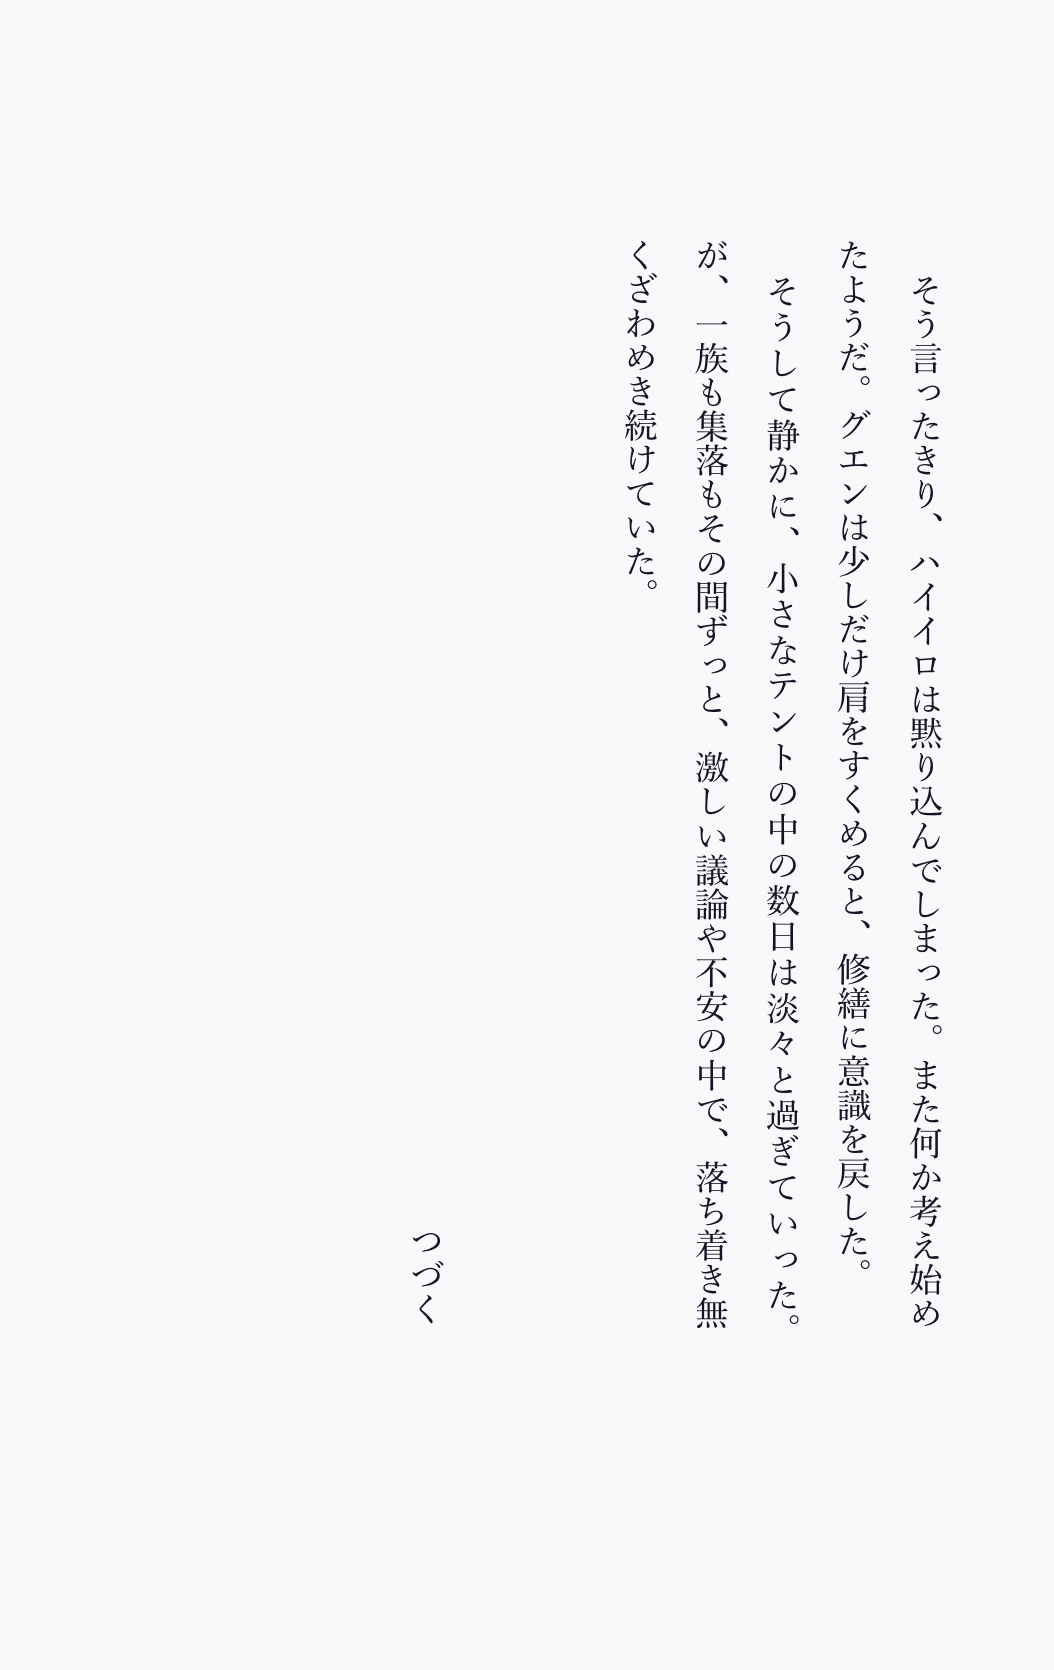 そう言ったきり、ハイイロは黙り込んでしまった。また何か考え始め
たようだ。グエンは少しだけ肩をすくめると、修繕に意識を戻した。
そうして静かに、小さなテントの中の数日は淡々と過ぎていった。
が、一族も集落もその間ずっと、激しい議論や不安の中で、落ち着き無
くざわめき続けていた。
つづく